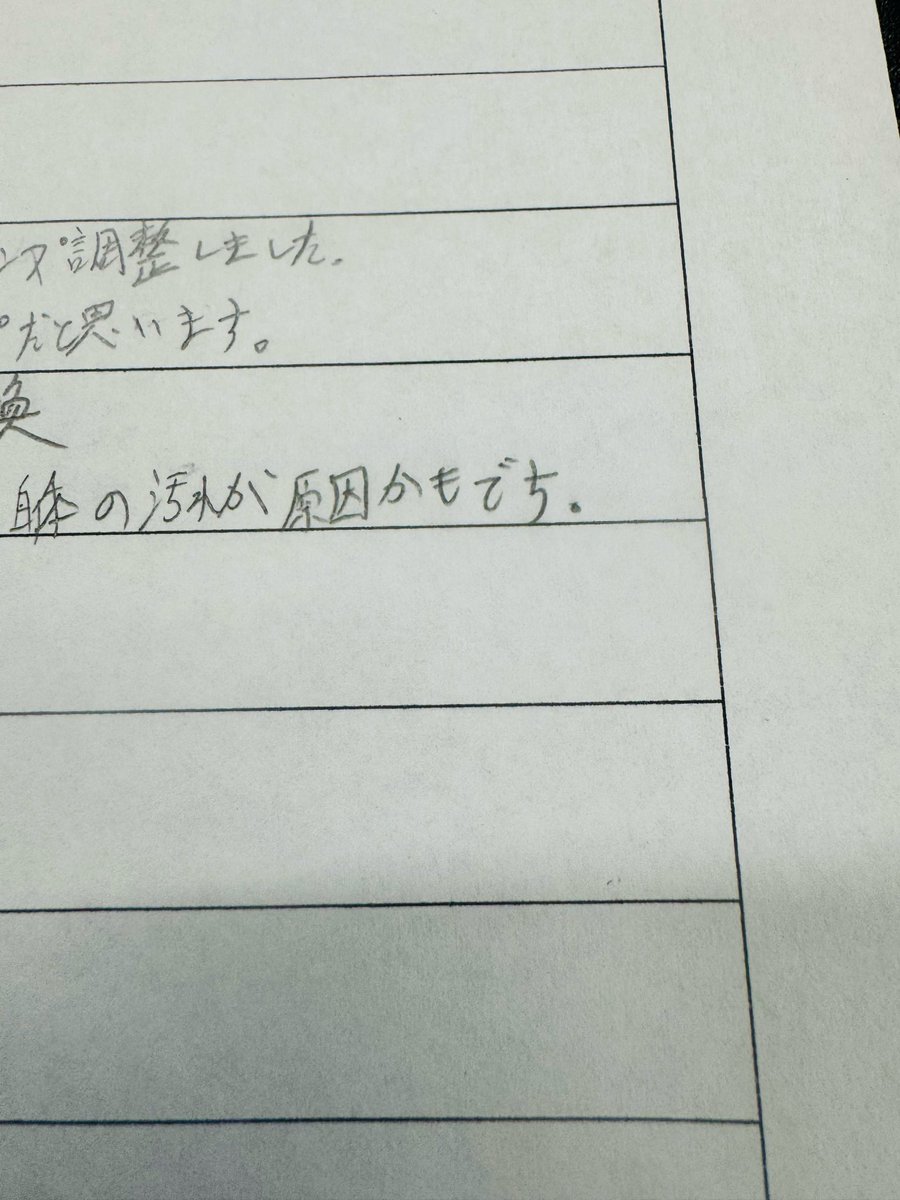 調整しました.
だと思います。
換
自体の汚れが原因かもでち.